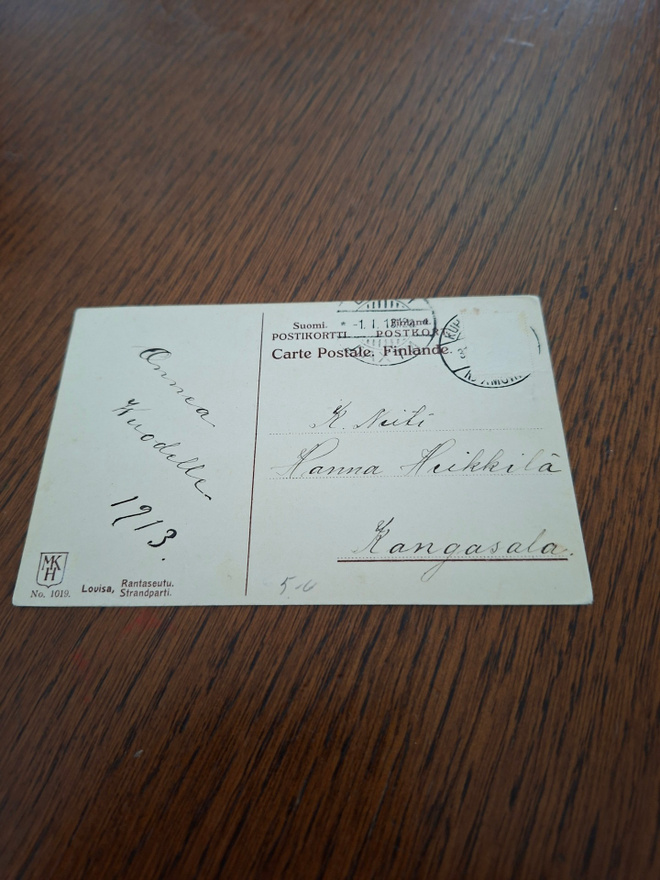 Onnea
Vuodelle
1913.
MK
H
No. 1019.
Lovisa, Rantaseutu.
Strandparti.
Suomi. Finland.
POSTIKORTTI POSTKOR
Carte Postale. Finlande.
-1. I. 13
K. Neiti
Hanna Heikkilä
Kangasala.
5-6